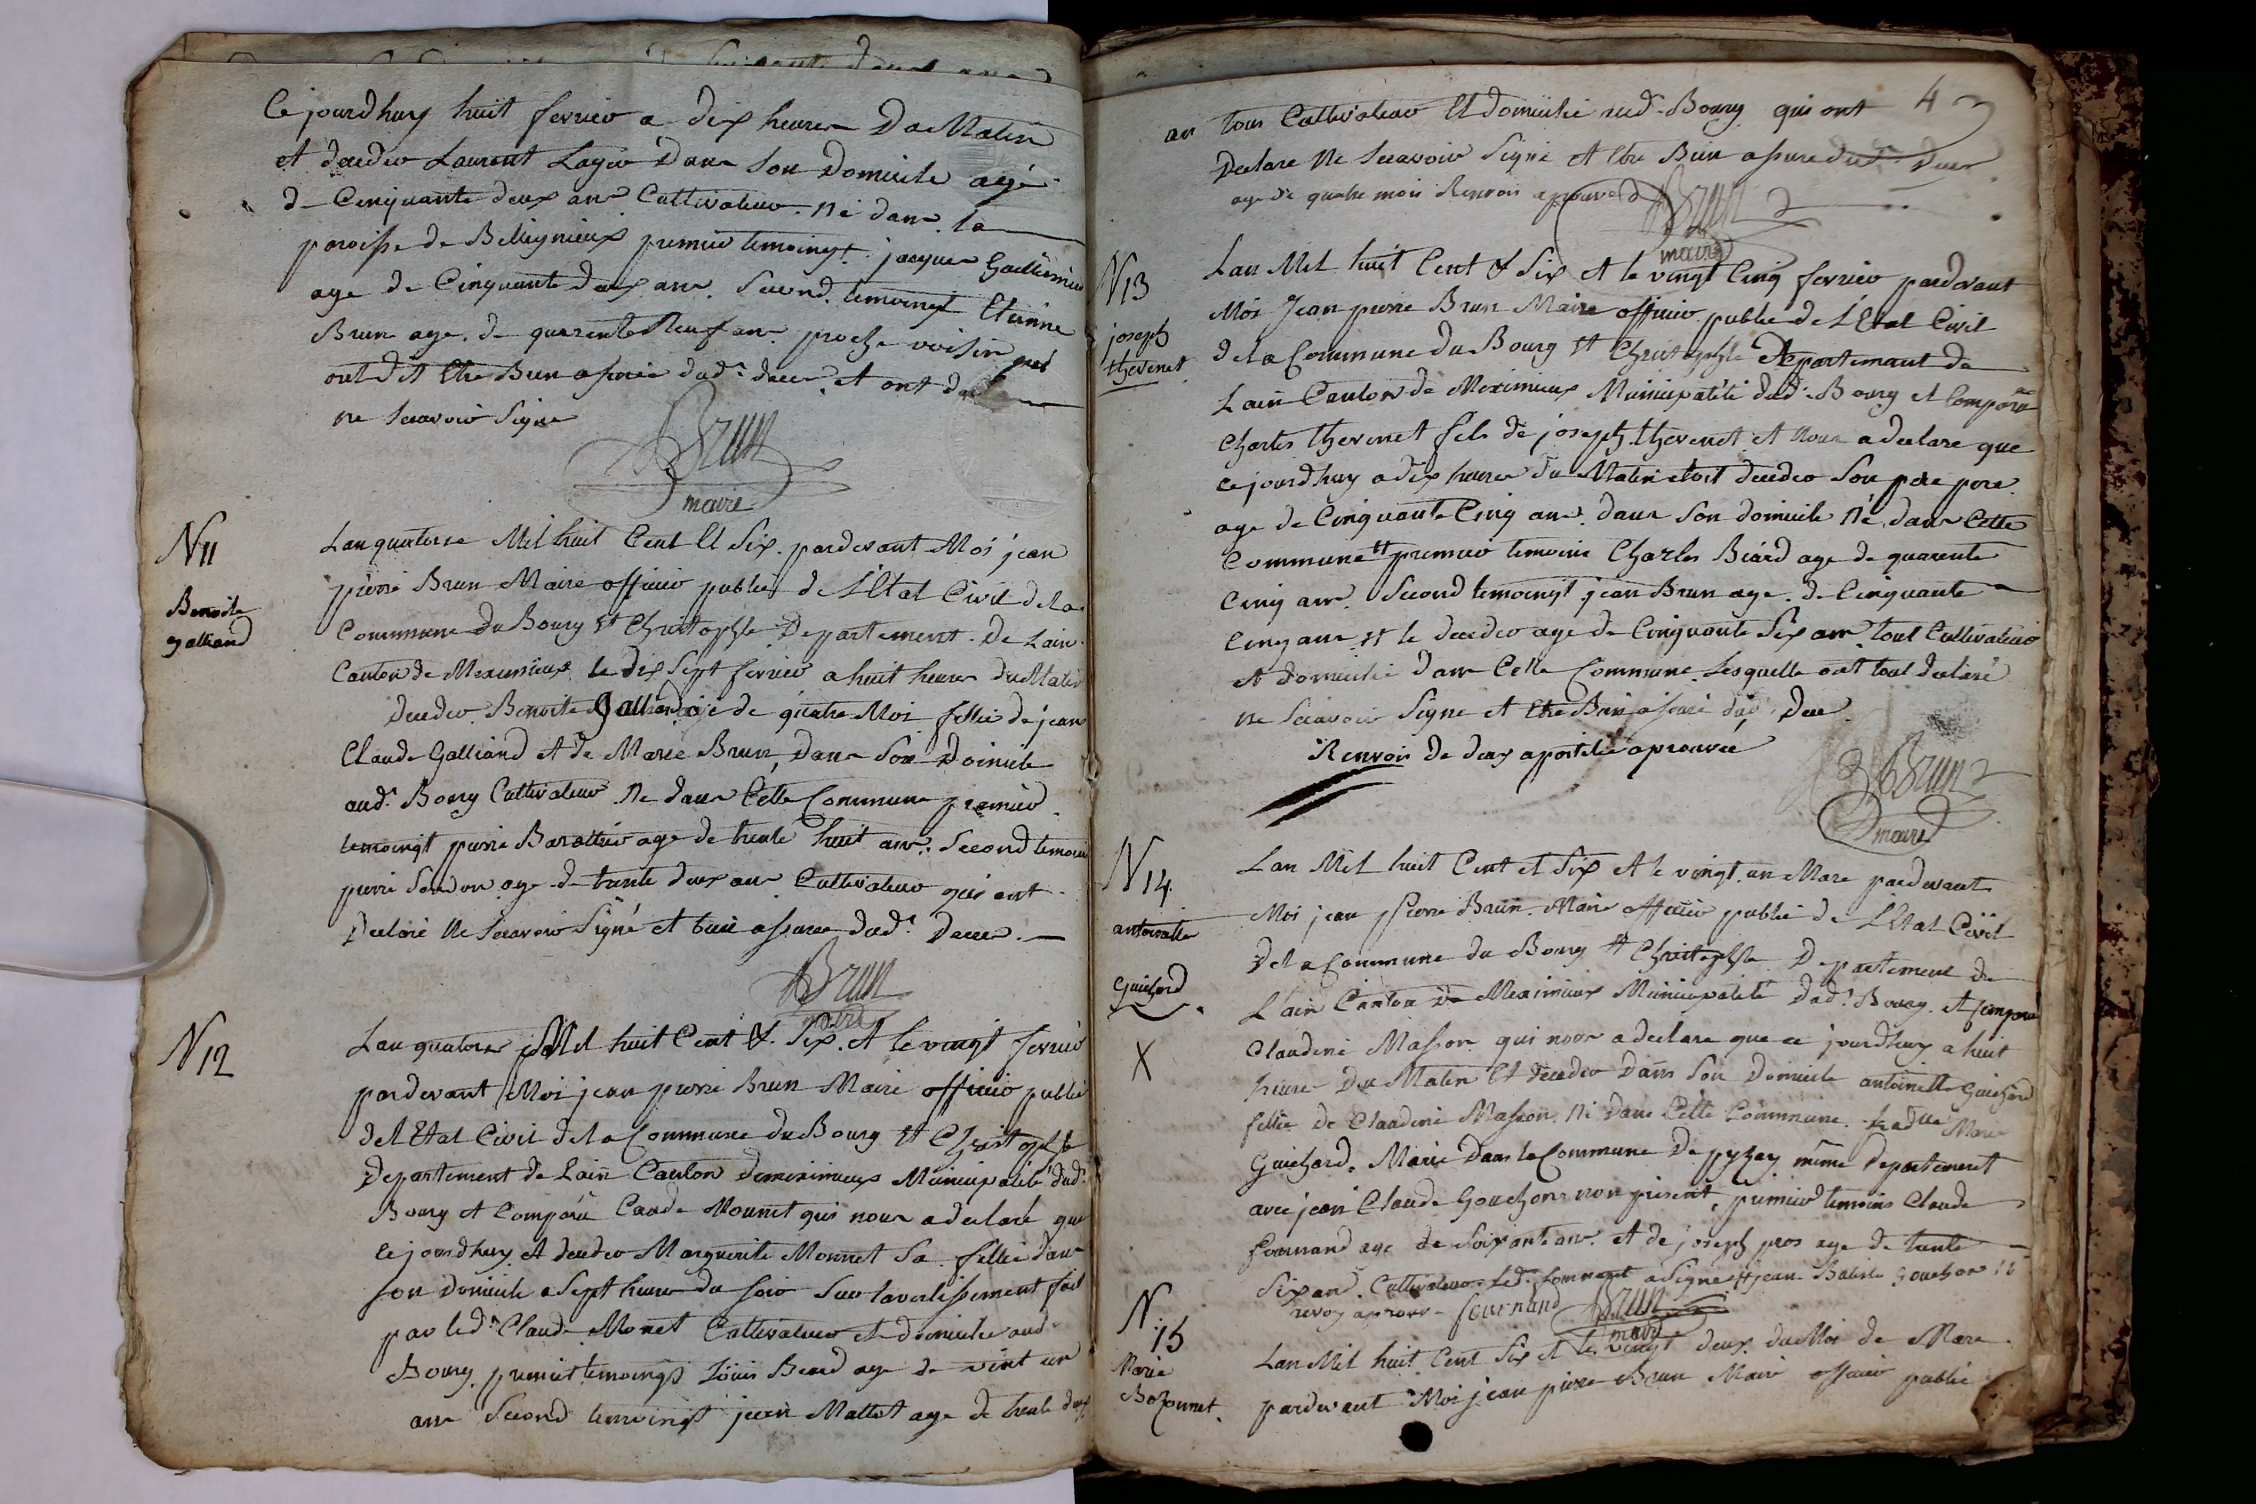 Ce jourdhuy huit fevrier a dix heures Du Matin
et decedee Laurent Dans Son Domicile agé
de Cinquante deux ans Cultivateur. Né dans la
paroisse de Belligneux premier temoingt jacques
age de Cinquante deux ans. Second temoingt Etienne
Brun age de quarente Neuf ans proche voisin qui
ont dit Etre Bien assuré dud. deces et ont
ne scavoir Signe
Brun
maire
N 11
Benoite
galliand
Lan quatorze Mil huit Cent Et Six pardevant Moi jean
pierre Brun Maire officier public de LEtat Civil de la
Commune Du Bourg St Christophle Departement De Lain
Canton de Meximieux le dix Sept fevrier a huit heures Du Matin
Decedee Benoite Galliand age de quatre Moi fillie de jean
Claude Galliand et de Marie Brun, Dans Son Domicile
aud. Bourg Cultivateur Né dans Cette Commune premier
temoingt pierre age de trente huit ans. Second temoin
pierre age de trente deux ans Cultivateur qui ont
Declaré Ne Scavoir Signé et bien assuré dud. Deces
Brun
maire
N 12
Lan quatorze Mil huit Cent & Six. et le vingt fevrier
pardevant Moi jean pierre Brun Maire officier public
de lEtat Civil de la Commune du Bourg St Christophle
Departement de Lain Canton de meximieux Municipalité dud.
Bourg et Comparu Caude Monnet qui nous a declaré que
ce jourdhuy et decedee Marguerite Monnet Sa fillie dans
son Domicile a Sept heures du soir Sur lavertissement fait
par led. Claude Monet Cultivateur et domicilie aud.
Bourg. premier temoingt Louis Beard age de vint un
ans Second temoingt jean Mallet age de trente deux
4
an tous Cultivateur Et domicilié aud. Bourg qui ont
Declare Ne Scavoir Signé et Etre Bien assure dud. Deces
age de quatre mois Renvois aprouvé
Brun
maire
N 13
joseph
thevenet
Lan Mil huit Cent & Six et le vingt Cinq fevrier pardevant
Moi Jean pierre Brun Maire officier public de LEtat Civil
de la Commune Du Bourg St Christophle Departement de
Lain Canton de Meximieux Municipalité dud. Bourg et Comparu
Charles thevenet fils de joseph thevenet et Nous a declare que
ce jourdhuy a dix heures du Matin etoit decedee Son pere
age de Cinquante Cinq ans dans Son domicile Né dans Cette
Commune premier temoins Charles Béard age de quarente
Cinq ans. Second temoingt jean Brun age de Cinquante
Cinq ans et le decedee age de Cinquante Six ans tout Cultivateur
et domicilié dans Cette Commune Lesquelle ont tout declaré
ne Scavoir Signe et Etre Bien assuré dud. Deces
Renvois de deux apostilie aprouvée
Brun
maire
N 14
antoinette
Guichard
X
Lan Mil huit Cent et Six et le vingt un Mars pardevant
Moi jean pierre Brun Maire officier public de LEtat Civil
De la Commune du Bourg St Christophle Departement de
Lain Canton de Meximieux Municipalité dud. Bourg et Comparu
Claudine Masson qui nous a declare que ce jourdhuy a huit
heures Du Matin Et decedee Dans Son Domicile antoinette Guichard
fillie de Claudine Masson Né dans Cette Commune. Ladite Marie
Guichard. Marié Dans la Commune De pyzey même Departement
avec jean Claude Gouchon non present, premier temoins Claude
Fournand age de Soixante ans et de joseph pros age de trente
Six ans. Cultivateur Led. a Signe jean Batiste Gouchon
renvoy aprouve fournand Brun
maire
N 15
Marie
Bozonnet
Lan Mil huit Cent Six et le vingt deux du Moi de Mars
pardevant Moi jean pierre Brun Maire officier public